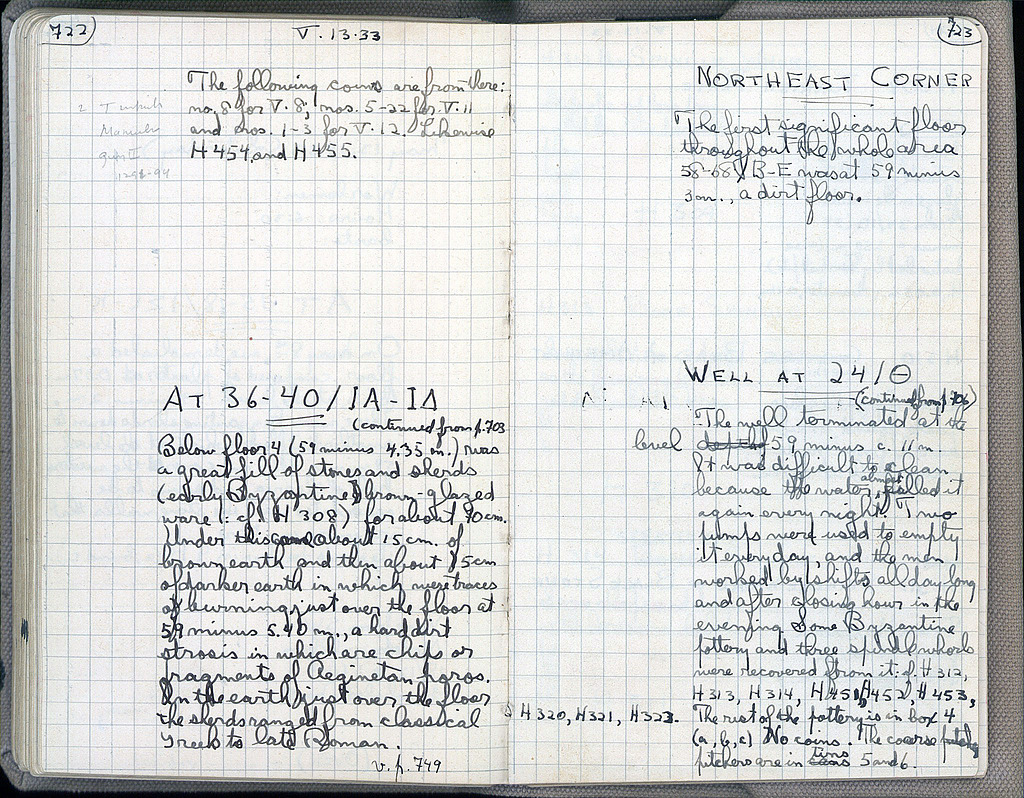 722
V. 13.33
The following coins are from there:
no. 8 for V. 8; nos. 5-22 for V. 11
and nos. 1-3 for V. 12. Likewise
H 454, and H 455.
AT 36-40/IA-IΔ
(continued from p. 703
Below floor 4 (59 minus 4.35 m.) was
a great fill of stones and sherds
(early Byzantine brown-glazed
ware: cf. H 308) for about 90 cm.
Under this came about 15 cm. of
brown earth and then about 15 cm
of darker earth in which were traces
of burning just over the floor at
59 minus 5.40 m., a hard dirt
strosis in which are chips or
fragments of Aeginetan poros.
In the earth just over the floor
the sherds ranged from classical
Greek to late Roman.
v. p. 749
723
NORTHEAST CORNER
The first significant floor
throughout the whole area
58-68/B-E was at 59 minus
3 m., a dirt floor.
WELL AT 24/Θ
(continued from p. 706)
The well terminated at the
level depth of 59 minus c. 11 m.
It was difficult to clean
because the water almost filled it
again every night. Two
pumps were used to empty
it every day, and the men
worked by shifts all day long
and after closing hour in the
evening. Some Byzantine
pottery and three spindle whorls
were recovered from it: cf. H 312,
H 313, H 314, H 451, H 452, H 453,
H 320, H 321, H 323. The rest of the pottery is in box 4
(a, b, c) No coins. The coarse
pitchers are in tins 5 and 6.